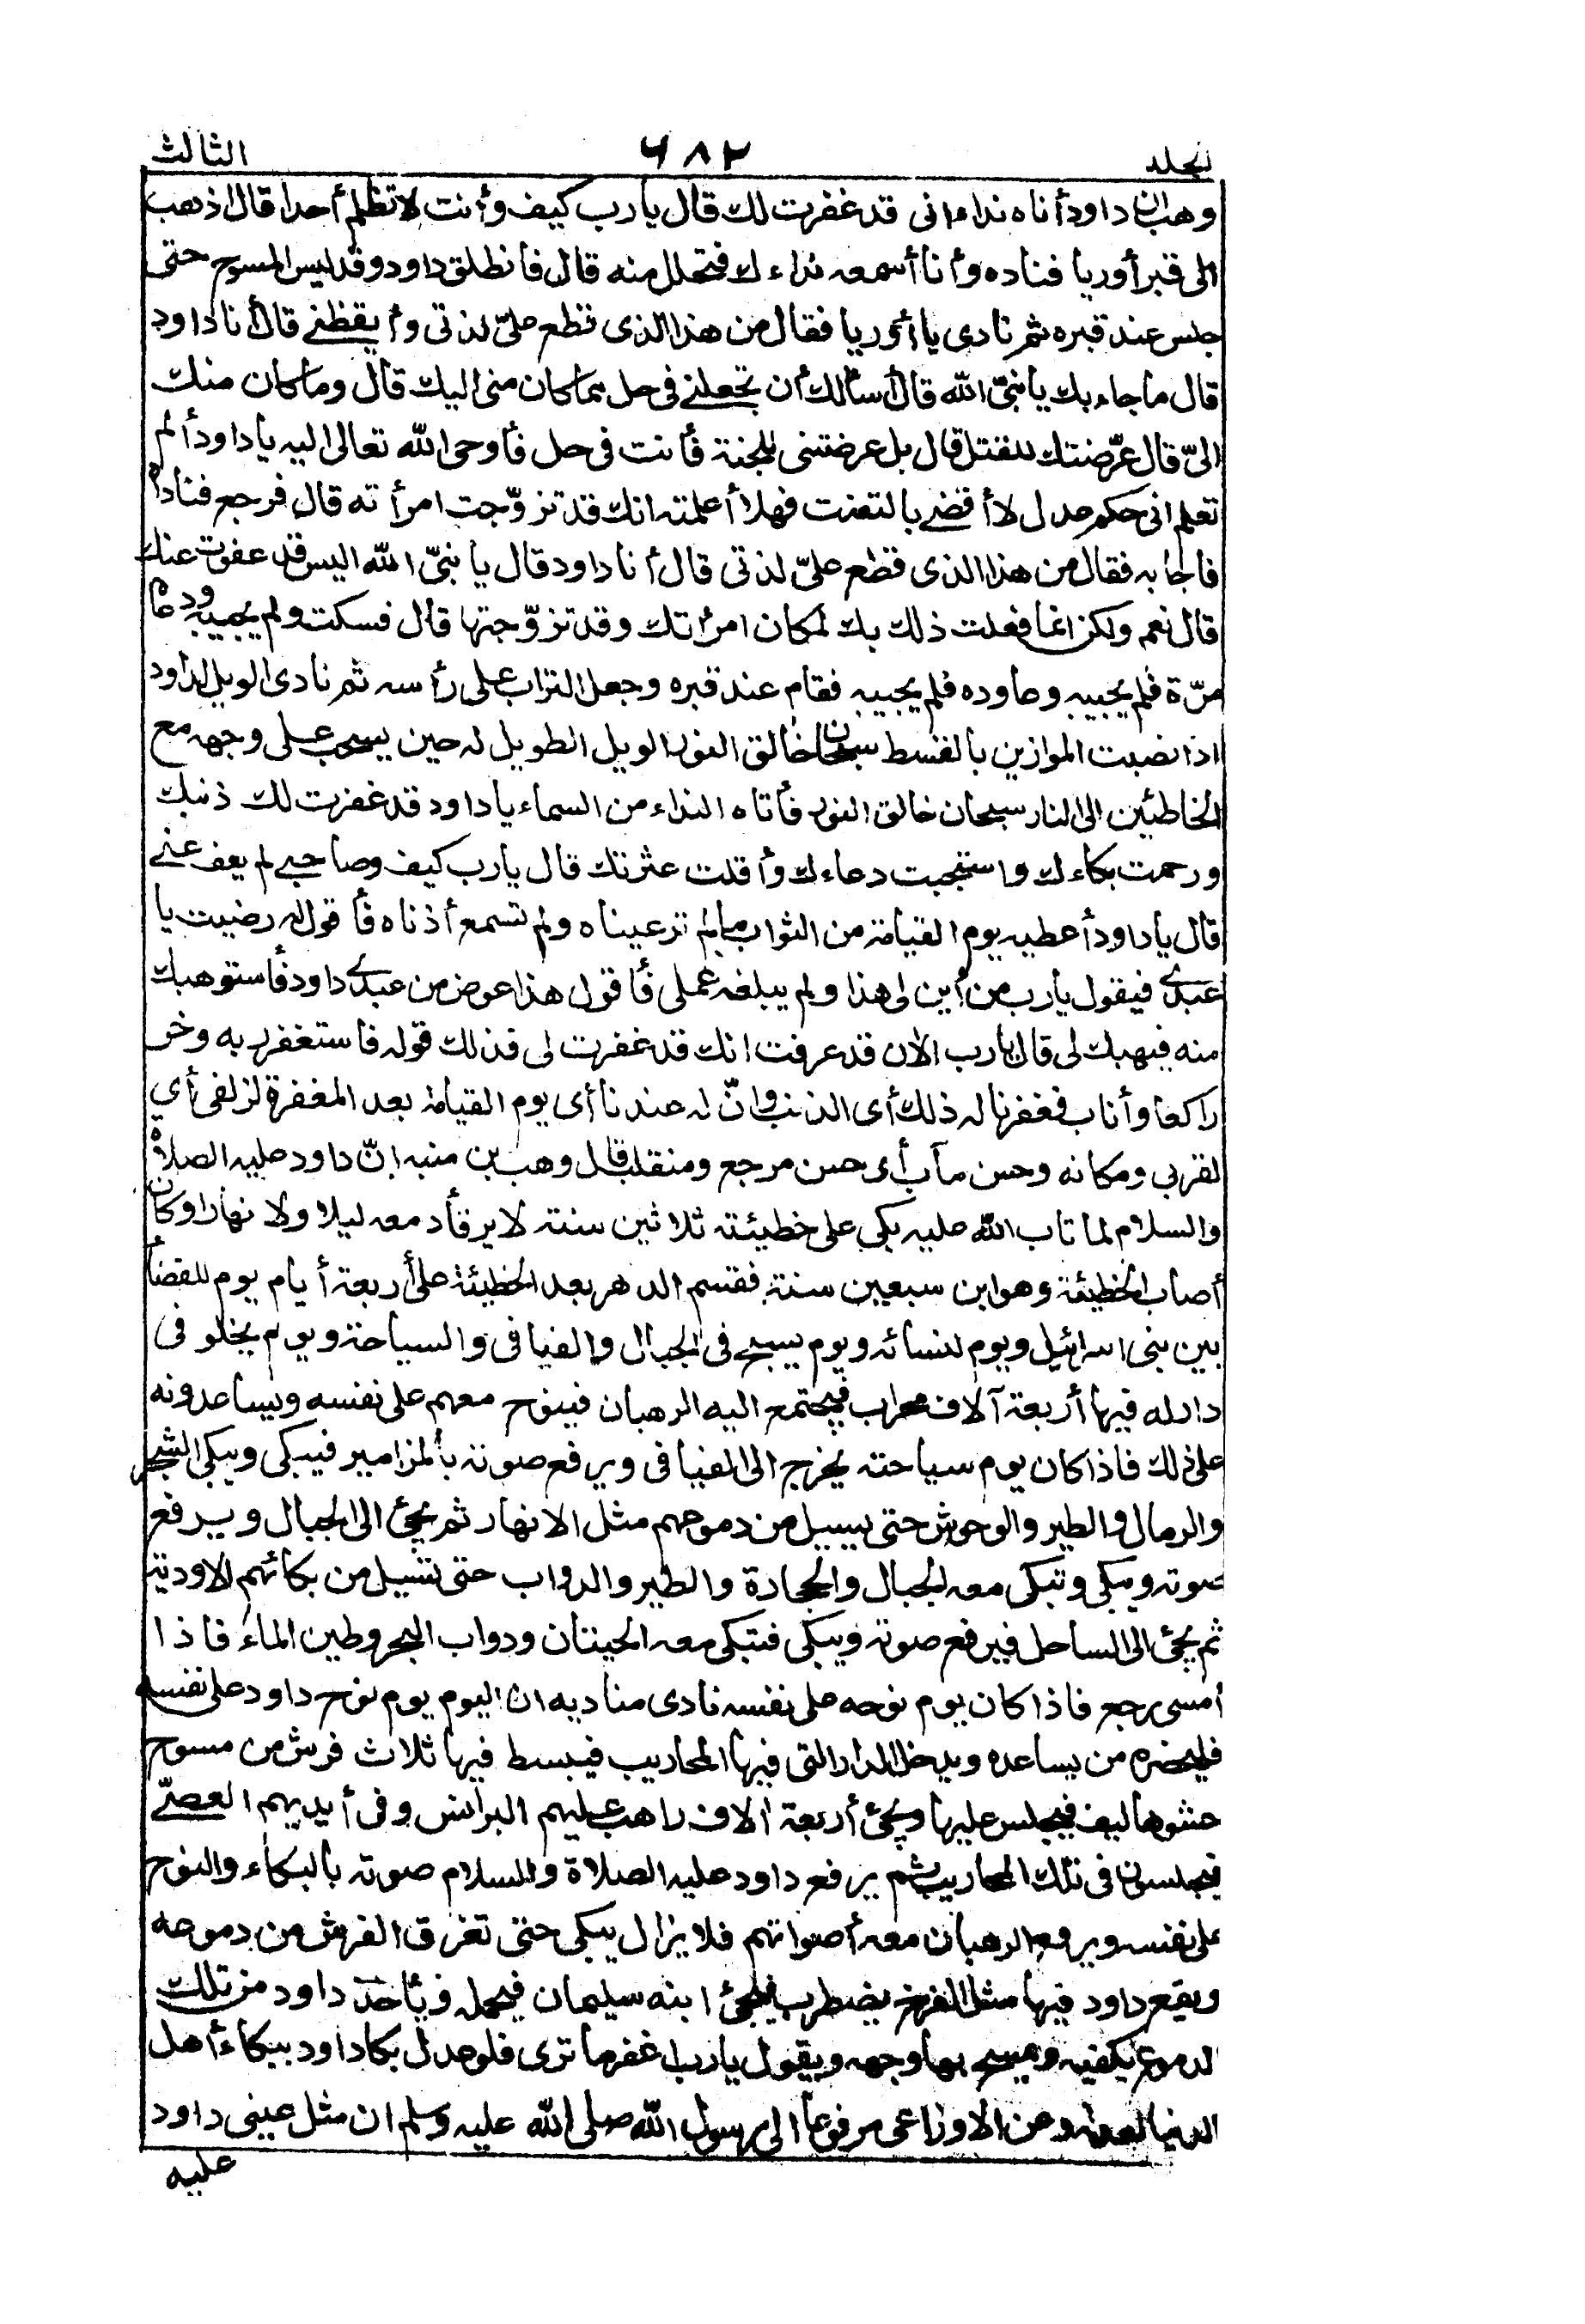 لجلد ٦٨٢ الثالث
وهب ان داود أتاه نداء انى قد غفرت لك قال يا رب كيف وأنت لا تظلم أحدا قال اذهب
الى قبر أوريا فناده وأنا أسمعه نداءك فتحلل منه قال فانطلق داود وقد لبس المسوح حتى
جلس عند قبره ثم نادى يا أوريا فقال من هذا الذى قطع علىّ لذتى وأيقظنى قال أنا داود
قال ما جاء بك يا نبىّ الله قال أسألك أن تجعلنى فى حل مما كان منى اليك قال وما كان منك
الىّ قال عرّضتك للقتل قال بل عرضتنى للجنة فأنت فى حل فأوحى الله تعالى اليه يا داود ألم
تعلم انى حكم عدل لا أقضى بالتعنت فهلا أعلمته انك قد تزوّجت امرأته قال فرجع فناداه
فاجابه فقال من هذا الذى قطع علىّ لذتى قال أنا داود قال يا نبىّ الله اليس قد عفوت عنك
قال نعم ولكن انما فعلت ذلك بك لمكان امرأتك وقد تزوّجتها قال فسكت ولم يجيبه ودعا
مرّة فلم يجيبه وعاوده فلم يجيبه فقام عند قبره وجعل التراب على رأسه ثم نادى الويل لداود
اذا نصبت الموازين بالقسط سبحان خالق النور الويل الطويل له حين يسحب على وجهه مع
الخاطئين الى النار سبحان خالق النور فأتاه النداء من السماء يا داود قد غفرت لك ذنبك
ورحمت بكاءك واستجبت دعاءك وأقلت عثرتك قال يا رب كيف وصاحبى لم يعف عنى
قال يا داود أعطيه يوم القيامة من الثواب ما لم تر عيناه ولم تسمع أذناه فأقول له رضيت يا
عبدى فيقول يا رب من أين لى هذا ولم يبلغه عملى فأقول هذا عوض من عبدى داود فأستوهبك
منه فيهبك لى قال يا رب الآن قد عرفت انك قد غفرت لى فذلك قوله فاستغفر ربه وخر
راكعا وأناب فغفرنا له ذلك أى الذنب وانّ له عندنا أى يوم القيامة بعد المغفرة لزلفى أي
لقربى ومكانه وحسن مآب أى حسن مرجع ومنقلب قال وهب بن منبه انّ داود عليه الصلاة
والسلام لما تاب الله عليه بكى على خطيئته ثلاثين سنة لا يرقأ دمعه ليلا ولا نهارا وكان
أصاب الخطيئة وهو ابن سبعين سنة فقسم الدهر بعد الخطيئة على أربعة أيام يوم للقضاء
بين بنى اسرائيل ويوم لنسائه ويوم يسيح فى الجبال والفيافى والسياحة ويوم يخلو فى
دار له فيها أربعة آلاف محراب فيجتمع اليه الرهبان فينوح معهم على نفسه ويساعدونه
على ذلك فاذا كان يوم سياحته يخرج الى الفيافى ويرفع صوته بالمزامير فيبكى ويبكى الشجر
والرمال والطير والوحوش حتى يسيل من دموعهم مثل الانهار ثم يجئ الى الجبال ويرفع
صوته ويبكى وتبكى معه الجبال والحجارة والطير والدواب حتى تسيل من بكائهم الاودية
ثم يجئ الى الساحل فيرفع صوته ويبكى فتبكى معه الحيتان ودواب البحر وطين الماء فاذا
أمسى رجع فاذا كان يوم نوحه على نفسه نادى مناديه ان اليوم يوم نوح داود على نفسه
فليحضره من يساعده ويدخل الدار التى فيها المحاريب فيبسط فيها ثلاث فرش من مسوح
حشوها ليف فيجلس عليها ويجئ أربعة آلاف راهب عليهم البرانس وفى أيديهم العصىّ
فيجلسون فى تلك المحاريب ثم يرفع داود عليه الصلاة والسلام صوته بالبكاء والنوح
على نفسه ويرفع الرهبان معه أصواتهم فلا يزال يبكى حتى تغرق الفرش من دموعه
ويقع داود فيها مثل الفرخ يضطرب فيجئ ابنه سليمان فيحمله ويأخذ داود من تلك
الدموع بكفيه ويمسح بها وجهه ويقول يا رب اغفر ما ترى فلو عدل بكا داود ببكاء أهل
الدنيا لعدله وعن الاوزاعى مرفوعا الى رسول الله صلى الله عليه وسلم ان مثل عينى داود
عليه